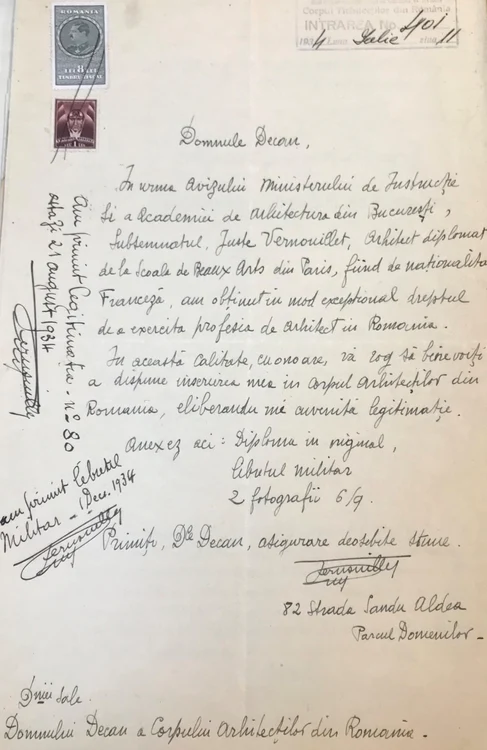 ROMANIA
LEI 8 LEI
TIMBRU FISCAL
Corpul Arhitecților din România
INTRAREA No. 401
193 4 Luna Iulie ziua 11
Domnule Decan,
In urma avizului Ministerului de Instrucție
și a Academiei de arhitectura din București,
subsemnatul, Juste Vernouillet, arhitect diplomat
de la Scoala de Beaux Arts din Paris, fiind de nationalitate
Franceză, am obtinut in mod exceptional dreptul
de a exercita profesia de arhitect in Romania.
In această calitate, cu onoare, vă rog să bine voiți
a dispune inscrierea mea in Corpul arhitecților din
Romania, eliberandu mi cuvenita legitimație.
Anexez aci : Diploma in original,
libretul militar
2 fotografii 6/9.
Primiți, Dle Decan, asigurare deosebite stime.
Vernouillet
82 Strada Sandu Aldea
Parcul Domenilor -
Dniei sale
Domnului Decan a Corpului Arhitecților din Romania -
Am primit legitimatia - no 80
astazi 21 august 1934
Vernouillet
am primit libretul
Militar - 1 Dec. 1934
Vernouillet